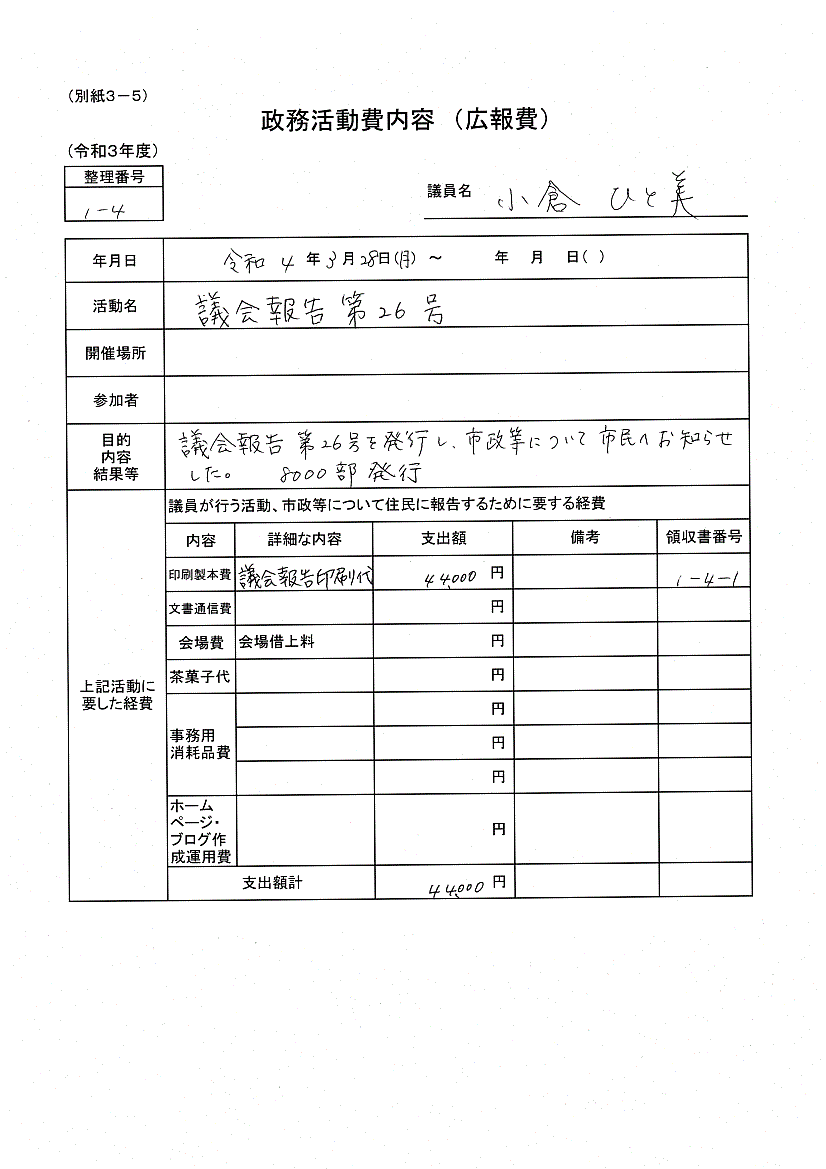 （別紙３－５）
政務活動費内容 （広報費）
（令和３年度）
整理番号
1-4
議員名 小倉 ひと美
年月日 令和 4 年 3 月 28 日(月) ～ 年 月 日( )
活動名 議会報告 第26号
開催場所
参加者
目的
内容
結果等
議会報告 第26号を発行し、市政等について市民へお知らせ
した。 8000部発行
議員が行う活動、市政等について住民に報告するために要する経費
内容 詳細な内容 支出額 備考 領収書番号
印刷製本費 議会報告印刷代 44,000 円 1-4-1
文書通信費 円
会場費 会場借上料 円
茶菓子代 円
上記活動に
要した経費
円
事務用
消耗品費
円
円
ホーム
ページ・
ブログ作
成運用費
円
支出額計 44,000 円